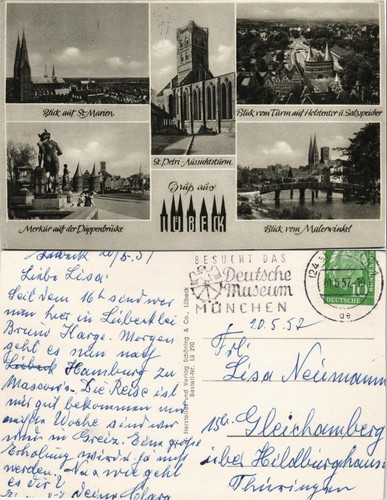 Blick auf St. Marien
St. Petri - Aussichtsturm
Blick vom Turm auf Holstentor u. Salzspeicher
Merkur auf der Puppenbrücke
Gruß aus
LÜBECK
Blick vom Malerwinkel
Lübeck 20/5.57
Liebe Lisa!
Seit dem 16t sind wir
nun hier in Lübeck bei
Bruno Harge. Morgen
geht es nun nach
Hamburg zu
Die Reise ist
mir gut bekommen
Woche sind wir
in Greiz. Eine große
Erholung
werden. Na, wie geht
es Dir?
Deine Clara
Hersteller und Verlag Schöning & Co., Lübeck
Bestell-Nr. Lü 292
BESUCHT DAS
Deutsche
Museum
MÜNCHEN
DEUTSCHE
10
20.5.57
Frl.
Lisa Neumann
Gleichamberg
über Hildburghausen
Thüringen